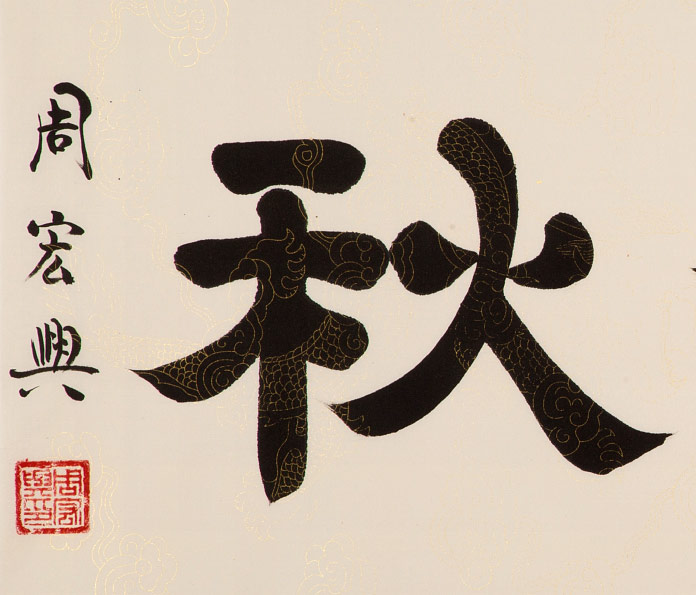 秋
周宏興
周宏
興印